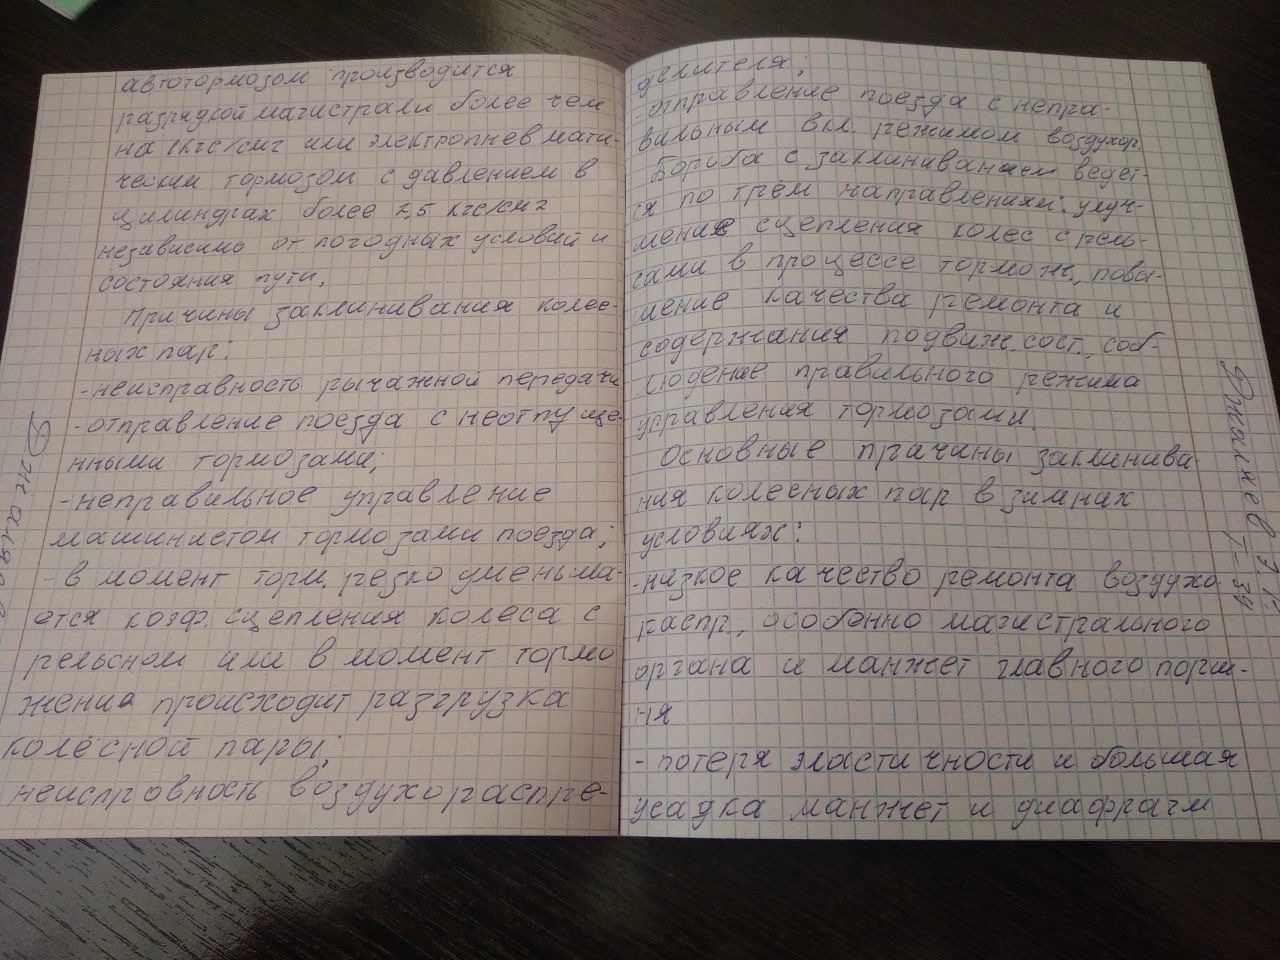 автотормозом производится
разрядкой магистрали более чем
на 1кгс/см2 или электропневмати-
ческим тормозом с давлением в
цилиндрах более 2,5 кгс/см2
независимо от погодных условий и
состояния пути.
Причины заклинивания колес-
ных пар:
-неисправность рычажной передачи
-отправление поезда с неотпуще-
нными тормозами;
-неправильное управление
машинистом тормозами поезда;
-в момент торм. резко уменьша-
ется коэф. сцепления колеса с
рельсном или в момент тормо
жения происходит разгрузка
колёсной пары;
неисправность воздухораспре-
делителя;
-отправление поезда с непра-
вильным вкл. режимом воздухор.
Борьба с заклиниванием ведет-
ся по трём направлениям: улуч-
шение сцепления колес с рель-
сами в процессе тормож., повы-
шение качества ремонта и
содержания подвиж. сост., соб-
людение правильного режима
управления тормозами.
Основные причины заклинива
ния колесных пар в зимних
условиях:
-низкое качество ремонта воздухо
распр., особенно магистрального
органа и манжет главного порш-
ня
-потеря эластичности и большая
усадка манжет и диафрагм